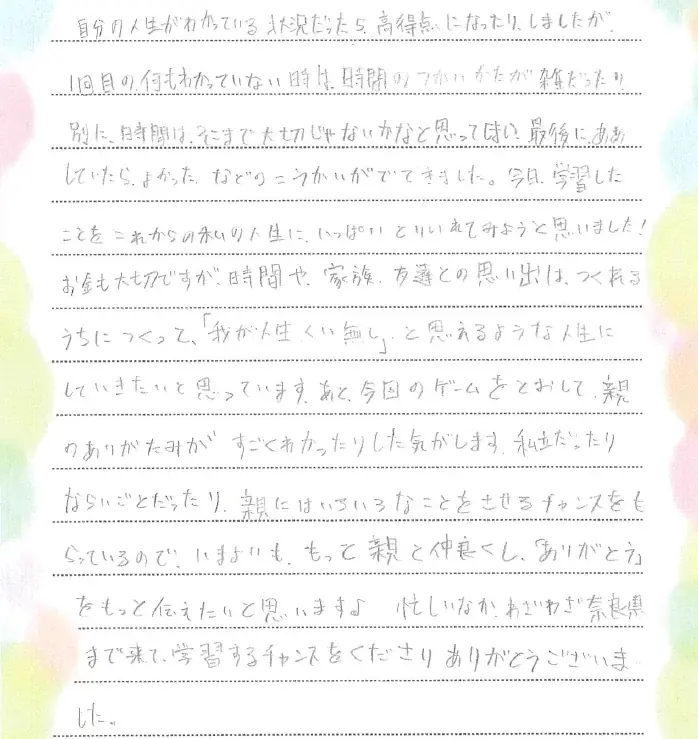 自分の人生がわかっている状況だったら、高得点になったり、しましたが、
1回目の、何もわかっていない時は、時間のつかいかたが雑だったり
別に、時間は、そこまで大切じゃないかなと思ってしまい、最後に、ああ
していたら、よかった、などのこうかいがでてきました。今日、学習した
ことをこれからの私の人生に、いっぱいとりいれてみようと思いました!
お金も大切ですが、時間や、家族、友達との思い出は、つくれる
うちにつくって、「我が人生くい無し」と思えるような人生に
していきたいと思っています。あと、今回のゲームをとおして、親
のありがたみが すごくわかったりした気がします。私立だったり
ならいごとだったり、親にはいろいろなことをさせるチャンスをも
らっているので、いまよりも、もっと親と仲良くし、「ありがとう」
をもっと伝えたいと思います♪ 忙しいなか、わざわざ奈良県
まで来て、学習するチャンスをくださりありがとうございま
した。